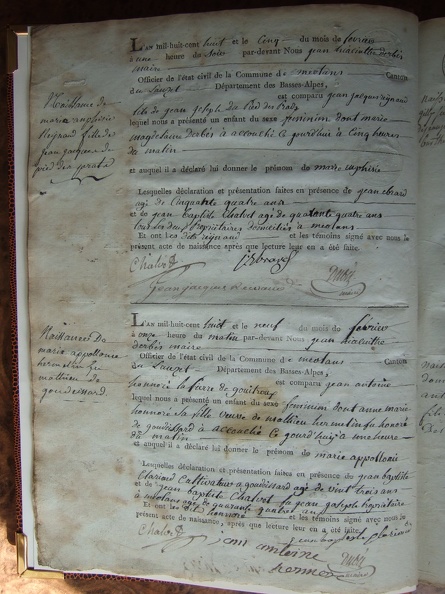 Naissance de
marie euphrosie
Reynaud fille de
jean jacques de
pied des prats
L'AN mil huit-cent huit et le Cinq du mois de fevrier
à une heure du Soir par-devant Nous jean hiacinthe derbès
maire
Officier de l'état civil de la Commune de meolans Canton
du Lauzet Département des Basses-Alpes,
est comparu jean jacques reynaud
fils de jean joseph du Pied des Prats
lequel nous a présenté un enfant du sexe feminim dont marie
magdelaine derbès a accouché ce jourd'hui à Cinq heures
du matin
et auquel il a déclaré lui donner le prénom de marie
Lesquelles déclaration et présentation faites en présence de jean
agé de Cinquante quatre ans
et de jean baptiste Chalvet agé de quarante quatre ans
tous les deux Propriétaires domiciliés à meolans
Et ont les dits reynaud et les témoins signé avec nous le
présent acte de naissance après que lecture leur en a été faite.
Chalvet
jean jacques reinaud
Naissance De
marie appollonie
hermelin fu
mathieu de
goudeissard.
L'AN mil huit-cent huit et le neuf du mois de février
à onze heures du matin par-devant Nous jean hiacinthe
derbès maire
Officier de l'état civil de la Commune de meolans Canton
du Lauzet Département des Basses-Alpes,
est comparu jean antoine
honnoré
lequel nous a présenté un enfant du sexe feminim dont anne marie
honnoré sa fille veuve de mathieu hermelin fu honoré
de goudissard a accouché ce jourd'huy à une heure
du matin
et auquel il a déclaré lui donner le prénom de marie appollonie
Lesquelles déclaration et présentation faites en présence de jean baptiste
Clariond Cultivateur à goudissard agé de vint trois ans
et de jean baptiste Chalvet fu jean joseph propriétaire
à meolans agé de quarante quatre ans
Et ont les dits honnoré et les témoins signé avec nous le
présent acte de naissance, après que lecture leur en a été faite.
Chalvet
jean baptiste Clariond
jean antoine